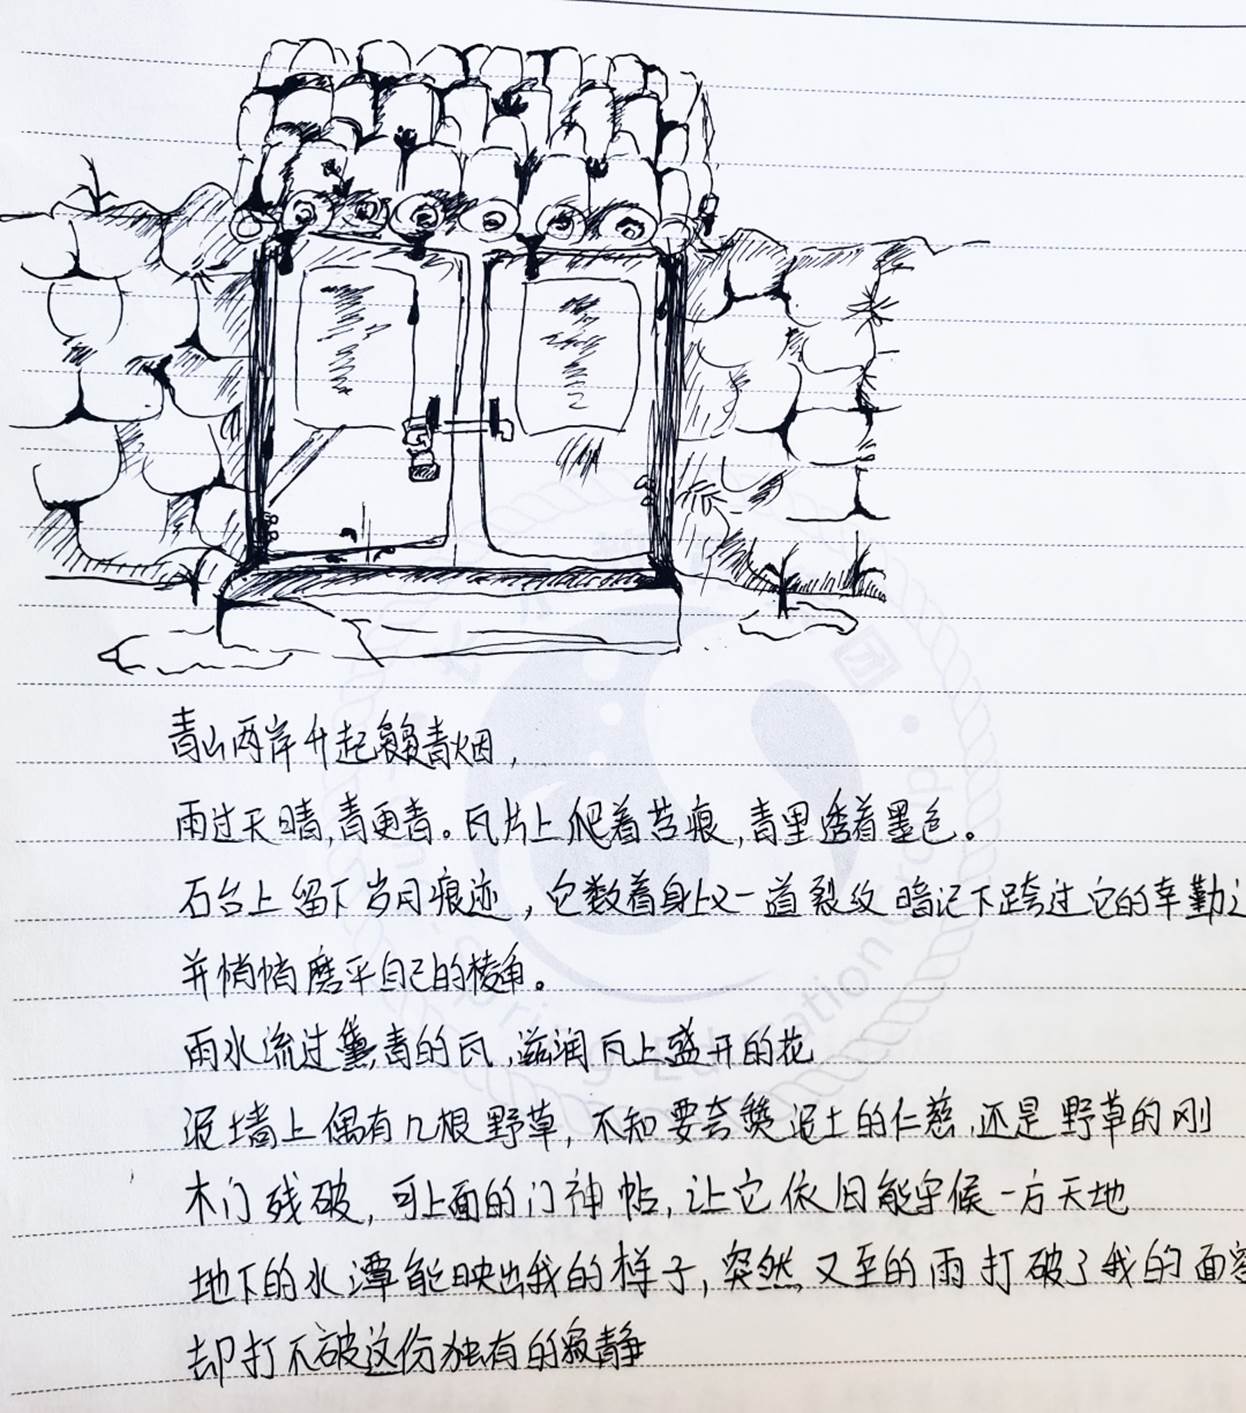 青山两岸升起袅袅青烟，
雨过天晴，青更青。瓦片上爬着苔痕，青里透着墨色。
石台上留下岁月痕迹，它数着身上又一道裂纹 暗记下跨过它的辛勤之
并悄悄磨平自己的棱角。
雨水流过黛青的瓦，滋润瓦上盛开的花
泥墙上偶有几根野草，不知要夸赞泥土的仁慈，还是野草的刚
木门残破，可上面的门神帖，让它依旧能守候一方天地
地下的水潭能映出我的样子，突然，又至的雨打破了我的面容
却打不破这份独有的寂静